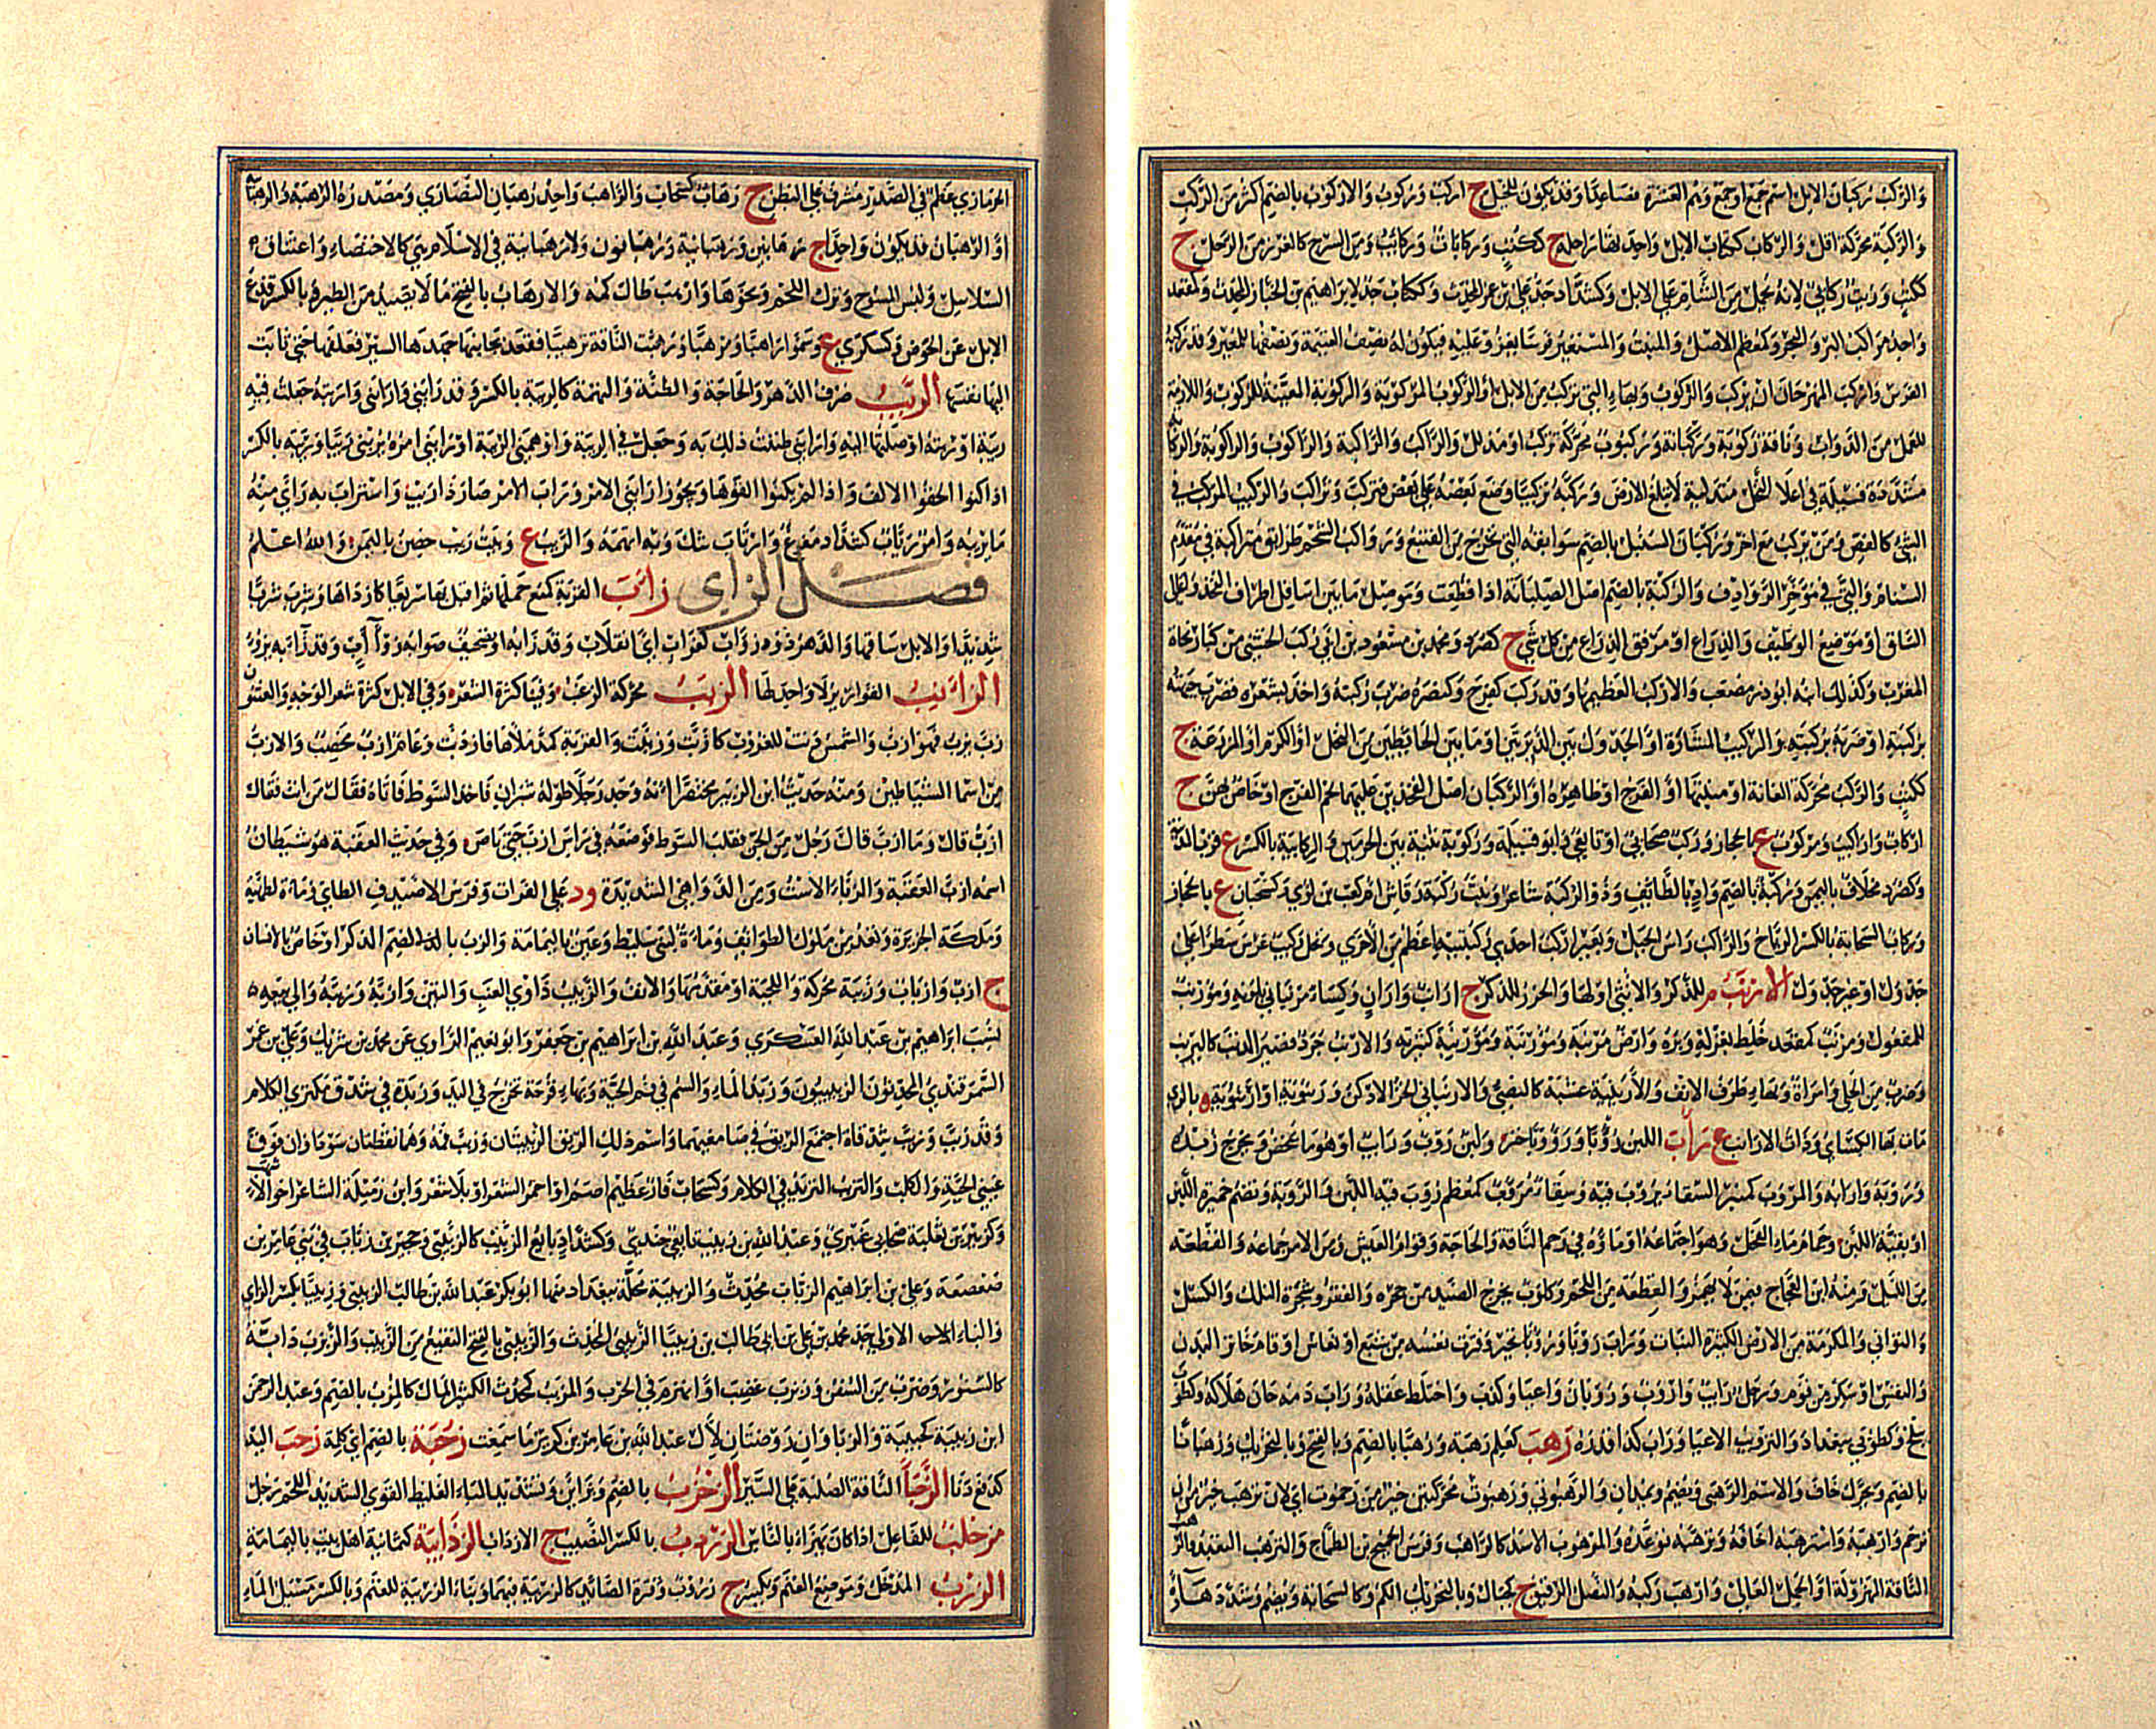 وَالرَّكْبُ رُكْبَانُ الإبِلِ اسم جمعٍ أو جمع وهم العشرة فصاعدا وقد يكون للخيل ج اركب وركوب والاركوب بالضم اكثر من الركب
والركبة محركة اقل والركاب ككتاب الابل واحدتها راحلة ج ككتب وركابات وركائب ومن السرج كالغرز من الرحل ج
ككتب وزيت ركابي لانه يحمل من الشام على الابل وكشداد جد علي بن عمر المحدث وككتاب جد لابراهيم بن الخباز المحدث وكمقعد
واحد مراكب البر والبحر وكمعظم الاصل والمنبت والمستعير فرسا يغزو عليه فيكون له نصف الغنيمة ونصفها للمعير وقد ركبه
الفرس واركب المهر حان ان يركب والركوب وبهاء التي تركب من الابل او الركوب المركوبة والركوبة المعينة للركوب واللازمة
للعمل من الدواب وناقة ركوبة وركبانة وركبوت محركة تركب او مذلل والراكب والراكبة والراكوب والراكوبة والركابة
مشددة فسيلة في اعلا النخل متدلية لا تبلغ الارض وركبه تركيبا وضع بعضه على بعض فتركب وتراكب والركيب المركب في
الشي كالفص ومن يركب مع اخر وركبان السنبل بالضم سوابقه التي تخرج من القنبع ورواكب الشحم طرائق متراكبة في مقدم
السنام والتي في مؤخر الروادف والركبة بالضم اصل الصليانة اذا قطعت وموصل ما بين اسافل اطراف الفخذ واعالي
الساق او موضع الوظيف والذراع او مرفق الذراع من كل شي ج كصرد ومحمد بن مسعود بن ابي ركب الخشني من كبار نحاة
المغرب وكذلك ابنه ابو ذر مصعب والاركب العظيمها وقد ركب كفرح وكنصره ضرب ركبته واخذ بشعره فضرب جبهته
بركبته او ضربه بركبته والركيب المشارة او الجدول بين الدبرتين او ما بين الحائطين من النخل او الكرم او المزرعة ج
ككتب والركب محركة العانة او منبتها او الفرج او ظاهره او الركبان اصل الفخذين عليهما لحم الفرج او خاص بهن ج
اركاب واراكيب ومركوب ع بالحجاز وركب صحابي او تابعي وابو قبيلة وركوبة ثنية بين الحرمين والركابية بالكسر ع قرب المدينة
وكصرد مخلاف باليمن وركبة بالضم واد بالطائف وذو الركبة شاعر وبنت ركبة رقاش ام كعب بن لؤي وكسحبان ع بالحجاز
وركاب السحابة بالكسر الرياح والراكب راس الجبل وبعير اركب احدى ركبتيه اعظم من الاخرى ونخل ركيب غرس سطرا على
جدول او غير جدول الارنب م للذكر والانثى او لها والخزز للذكر ج ارانب واران وكساء مرنباني بلونه ومؤرنب
للمفعول ومرنب كمقعد خلط بغزله وبره وارض مرنبة ومؤرنبة ومؤرنبة كثيرته والارنب جرذ قصير الذنب كاليرنب
وضرب من الحلي وامراة وبهاء طرف الانف والارينبة عشبة كالنصي والارنباني الخز الادكن وربنوية او ارنبوية ه بالري
مات بها الكسائي وذات الارانب ع راب اللبن روبا ورؤوبا خثر ولبن روب ورايب او هو ما يمخض ويخرج زبده
وروبه وارابه والمروب كمنبر السقاء يروب فيه وسقاء مروب كمعظم روب فيه اللبن والروبة وتضم خميرة اللبن
او بقية اللبن وجمام ماء الفحل وهو اجتماعه او ماؤه في رحم الناقة والحاجة وقوام العيش ومن الامر جماعه والقطعة
من الليل ومنه ابن العجاج فيمن لا يهمز والقطعة من اللحم وكلوب يخرج الصيد من جحره والفقر وشجرة النلك والكسل
والتواني والمكرمة من الارض الكثيرة النبات وراب روبا ورؤوبا تحير وفترت نفسه من شبع او نعاس او قام خاثر البدن
والنفس او سكر من نوم ورجل رائب واروب وروبان واعيا وكذب واختلط عقله وراب دمه حان هلاكه وكطوبى
ببلخ وكطوبى ببغداد والترويب الاعيا وراب كذا اي قدره رهب كعلم رهبة ورهبا بالضم وبالفتح وبالتحريك ورهبانا
بالضم ويحرك خاف والاسم الرهبى ويضم ويمدان والرهبوتى ورهبوت محركتين خير من رحموت اي لان ترهب خير من ان
ترحم وارهبه واسترهبه اخافه وترهبه توعده والمرهوب الاسد كالراهب وفرس الجميح بن الطماح والترهب التعبد والرهب
الناقة المهزولة او الجمل العالي وارهب ركبه والنصل الرقيق ج كجبال وبالتحريك الكم وكالسحابة ويضم وشدد هاؤه
الحرمازي عظم في الصدر مشرف على البطن ج رهاب كسحاب والراهب واحد رهبان النصارى ومصدره الرهبة والرهبانية
او الرهبان قد يكون واحدا ج رهابين ورهابنة ورهبانون ولا رهبانية في الاسلام هي كالاختصاء واعتناق
السلاسل ولبس المسوح وترك اللحم ونحوها وارهب طال كمه والارهاب بالفتح ما لا يصيد من الطير وبالكسر قدع
الابل عن الحوض وكسكرى ع وسموا راهبا ومرهبا ورهبت الناقة ترهيبا فقعد يحاييها جهدها السير فعلفها حتى ثابت
اليها نفسها الريب صرف الدهر والحاجة والظنة والتهمة كالريبة بالكسر وقد رابني وارابني واربته جعلت فيه
ريبة وربته اوصلتها اليه وارابني ظننت ذلك به وجعل في الريبة واوهمني الريبة او رابني امره يريبني ريبا وريبة بالكسر
اذا كنوا الحقوا الالف واذا لم يكنوا القوها ويجوز ارابني الامر وراب الامر صار ذا ريب واستراب به راى منه
ما يريبه وامر رياب كشداد مفزع وارتاب شك وبه اتهمه والريب ع وبيت ريب حصن باليمن والله اعلم
فصل الزاي زاب القربة كمنع حملها ثم اقبل بها سريعا كازدابها وشرب شربا
شديدا والابل ساقها والدهر ذو زؤاب كغراب اي انقلاب وقد زابه او تصحيف صوابه زوات وقد زاء به يزوء
الزآنيب القوارير لا واحد لها الزبب محركة الزغب وفينا كثرة الشعر وفي الابل كثرة شعر الوجه والعثنون
زب يزب فهو ازب والشمس دنت للغروب كازبت وزببت والقربة كمد ملاها فازدبت وعام ازب مخصب والازب
من اسما الشياطين ومنه حديث ابن الزبير مختصرا انه وجد رجلا طوله شبران فاخذ السوط فاتاه فقال من انت فقال
ازب قال وما ازب قال رجل من الجن فقلب السوط فوضعه في راس ازب حتى باص وفي حديث العقبة هو شيطان
اسمه ازب العقبة والزباء الاست ومن الدواهي الشديدة ود على الفرات وفرس الاصيدف الطايي وماءة لطهية
وملكة الجزيرة وتعد من ملوك الطوائف وماءة لبني سليط وعين باليمامة والزب بالضم الذكر او خاص بالانسان
ج ازب وازباب وزببة محركة واللحية او مقدمها والانف والزبيب ذاوي العنب والتين وازبه وزببه والى بيعه
نسب ابراهيم بن عبد الله العسكري وعبد الله بن ابراهيم بن جعفر وابو نعيم الراوي عن محمد بن شريك وعلي بن عمر
السمرقندي المحدثون الزبيبيون وزبد الماء والسم في فم الحية وبهاء قرحة تخرج في اليد وزبدة في شدق مكثر الكلام
وقد زبب وزبب شدقاه اجتمع الريق في صامغيهما واسم ذلك الريق الزبيبتان وزبب فمه وهما نقطتان سوداوان فوق
عيني الحية والكلب والتزبب التزيد في الكلام وكسحاب فار عظيم اصم او احمر الشعر او بلا شعر وابن رميلة الشاعر اخو الاشهب
وكزبير بن ثعلبة صحابي عنبري وعبد الله بن زبيب تابعي جندي وكشداد بايع الزبيب كالزبيبي وحجير بن زباب في بني عامر بن
صعصعة وعلي بن ابراهيم الزباب محدث والزبيبية محلة ببغداد منها ابو بكر عبد الله بن طالب الزبيبي وزبيبا بكسر الزاي
والباء الاولى جد محمد بن علي بن ابي طالب بن زبيبا الزبيبي المحدث والزبيبي بالفتح النقيع من الزبيب والزبزب دابة
كالسنور وضرب من السفن وزبزب غضب او انهزم في الحرب والمزبب كمحدث الكثير المال كالمزب بالضم وعبد الرحمن
ابن زبيبة كحبيبة والزباوان روضتان لآل عبد الله بن عامر بن كريز ما سمعت زحبة بالضم اي كلمة زحب اليه
كدفع دنا الزخبا الناقة الصلبة على السير الزخزب بالضم وبزايين وتشديد الباء الغليظ القوي الشديد اللحم رجل
مزخلب للفاعل اذا كان يهزأ بالناس الزردب بالكسر النصيب ج الازداب الزذابية كثمانية اهل بيت باليمامة
الزرب المدخل وموضع الغنم ويكسر ج زروب وقترة الصائد كالزريبة فيهما وبناء الزريبة للغنم وبالكسر مسيل الماء